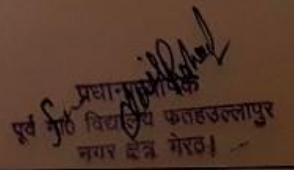 प्रधानाध्यापक
पूर्व मा0 विद्यालय फतहउल्लापुर
नगर क्षेत्र मेरठ।